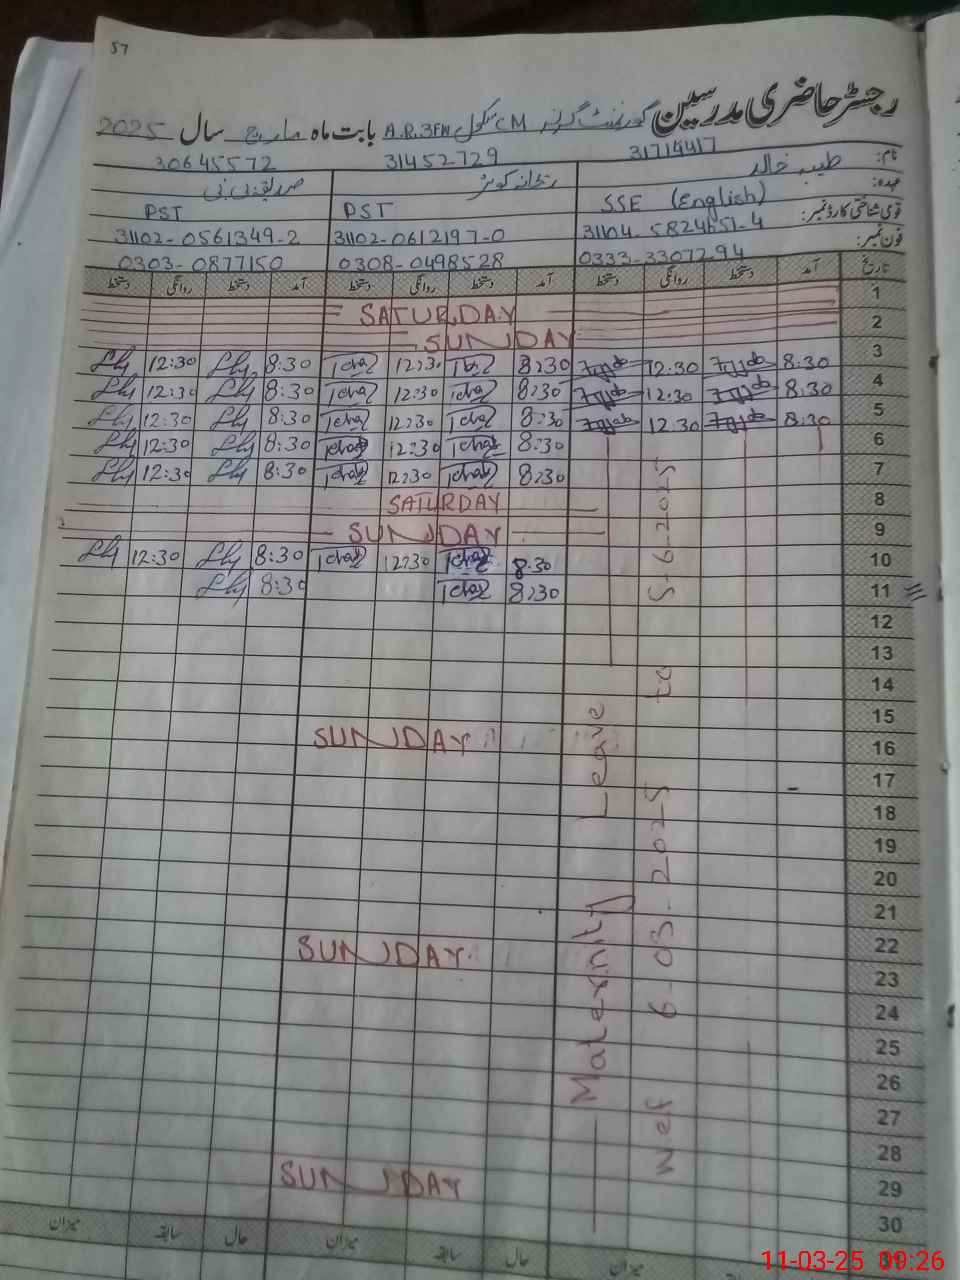 57
رجسٹر حاضری مدرسین گورنمنٹ گرلز CM سکول A.R.3FW بابت ماہ مارچ سال 2025
31714417 31452729 30645572
نام: طیبہ خالد ریحانہ کوثر صدیقہ بی بی
عہدہ: SSE (English) PST PST
قومی شناختی کارڈ نمبر: 31104-5824651-4 31102-0612197-0 31102-0561349-2
فون نمبر: 0333-3307294 0308-0498528 0303-0877150
تاریخ آمد دستخط روانگی دستخط آمد دستخط روانگی دستخط آمد دستخط روانگی دستخط
1 SATURDAY
2 SUNDAY
3 8:30 12:30 8:30 12:30 8:30 12:30
4 8:30 12:30 8:30 12:30 8:30 12:30
5 8:30 12:30 8:30 12:30 8:30 12:30
6 8:30 12:30 8:30 12:30
7 8:30 12:30 8:30 12:30
8 SATURDAY
9 SUNDAY
10 8:30 12:30 8:30 12:30
11 8:30 8:30
12
13
14
15
16 SUNDAY
17
18
19
20
21
22
23 SUNDAY
24
25
26
27
28
29
30 SUNDAY
Maternity Leave
w.ef 6-03-2025 to 5-6-2025
میزان حال سابقہ میزان حال سابقہ میزان
11-03-25 09:26